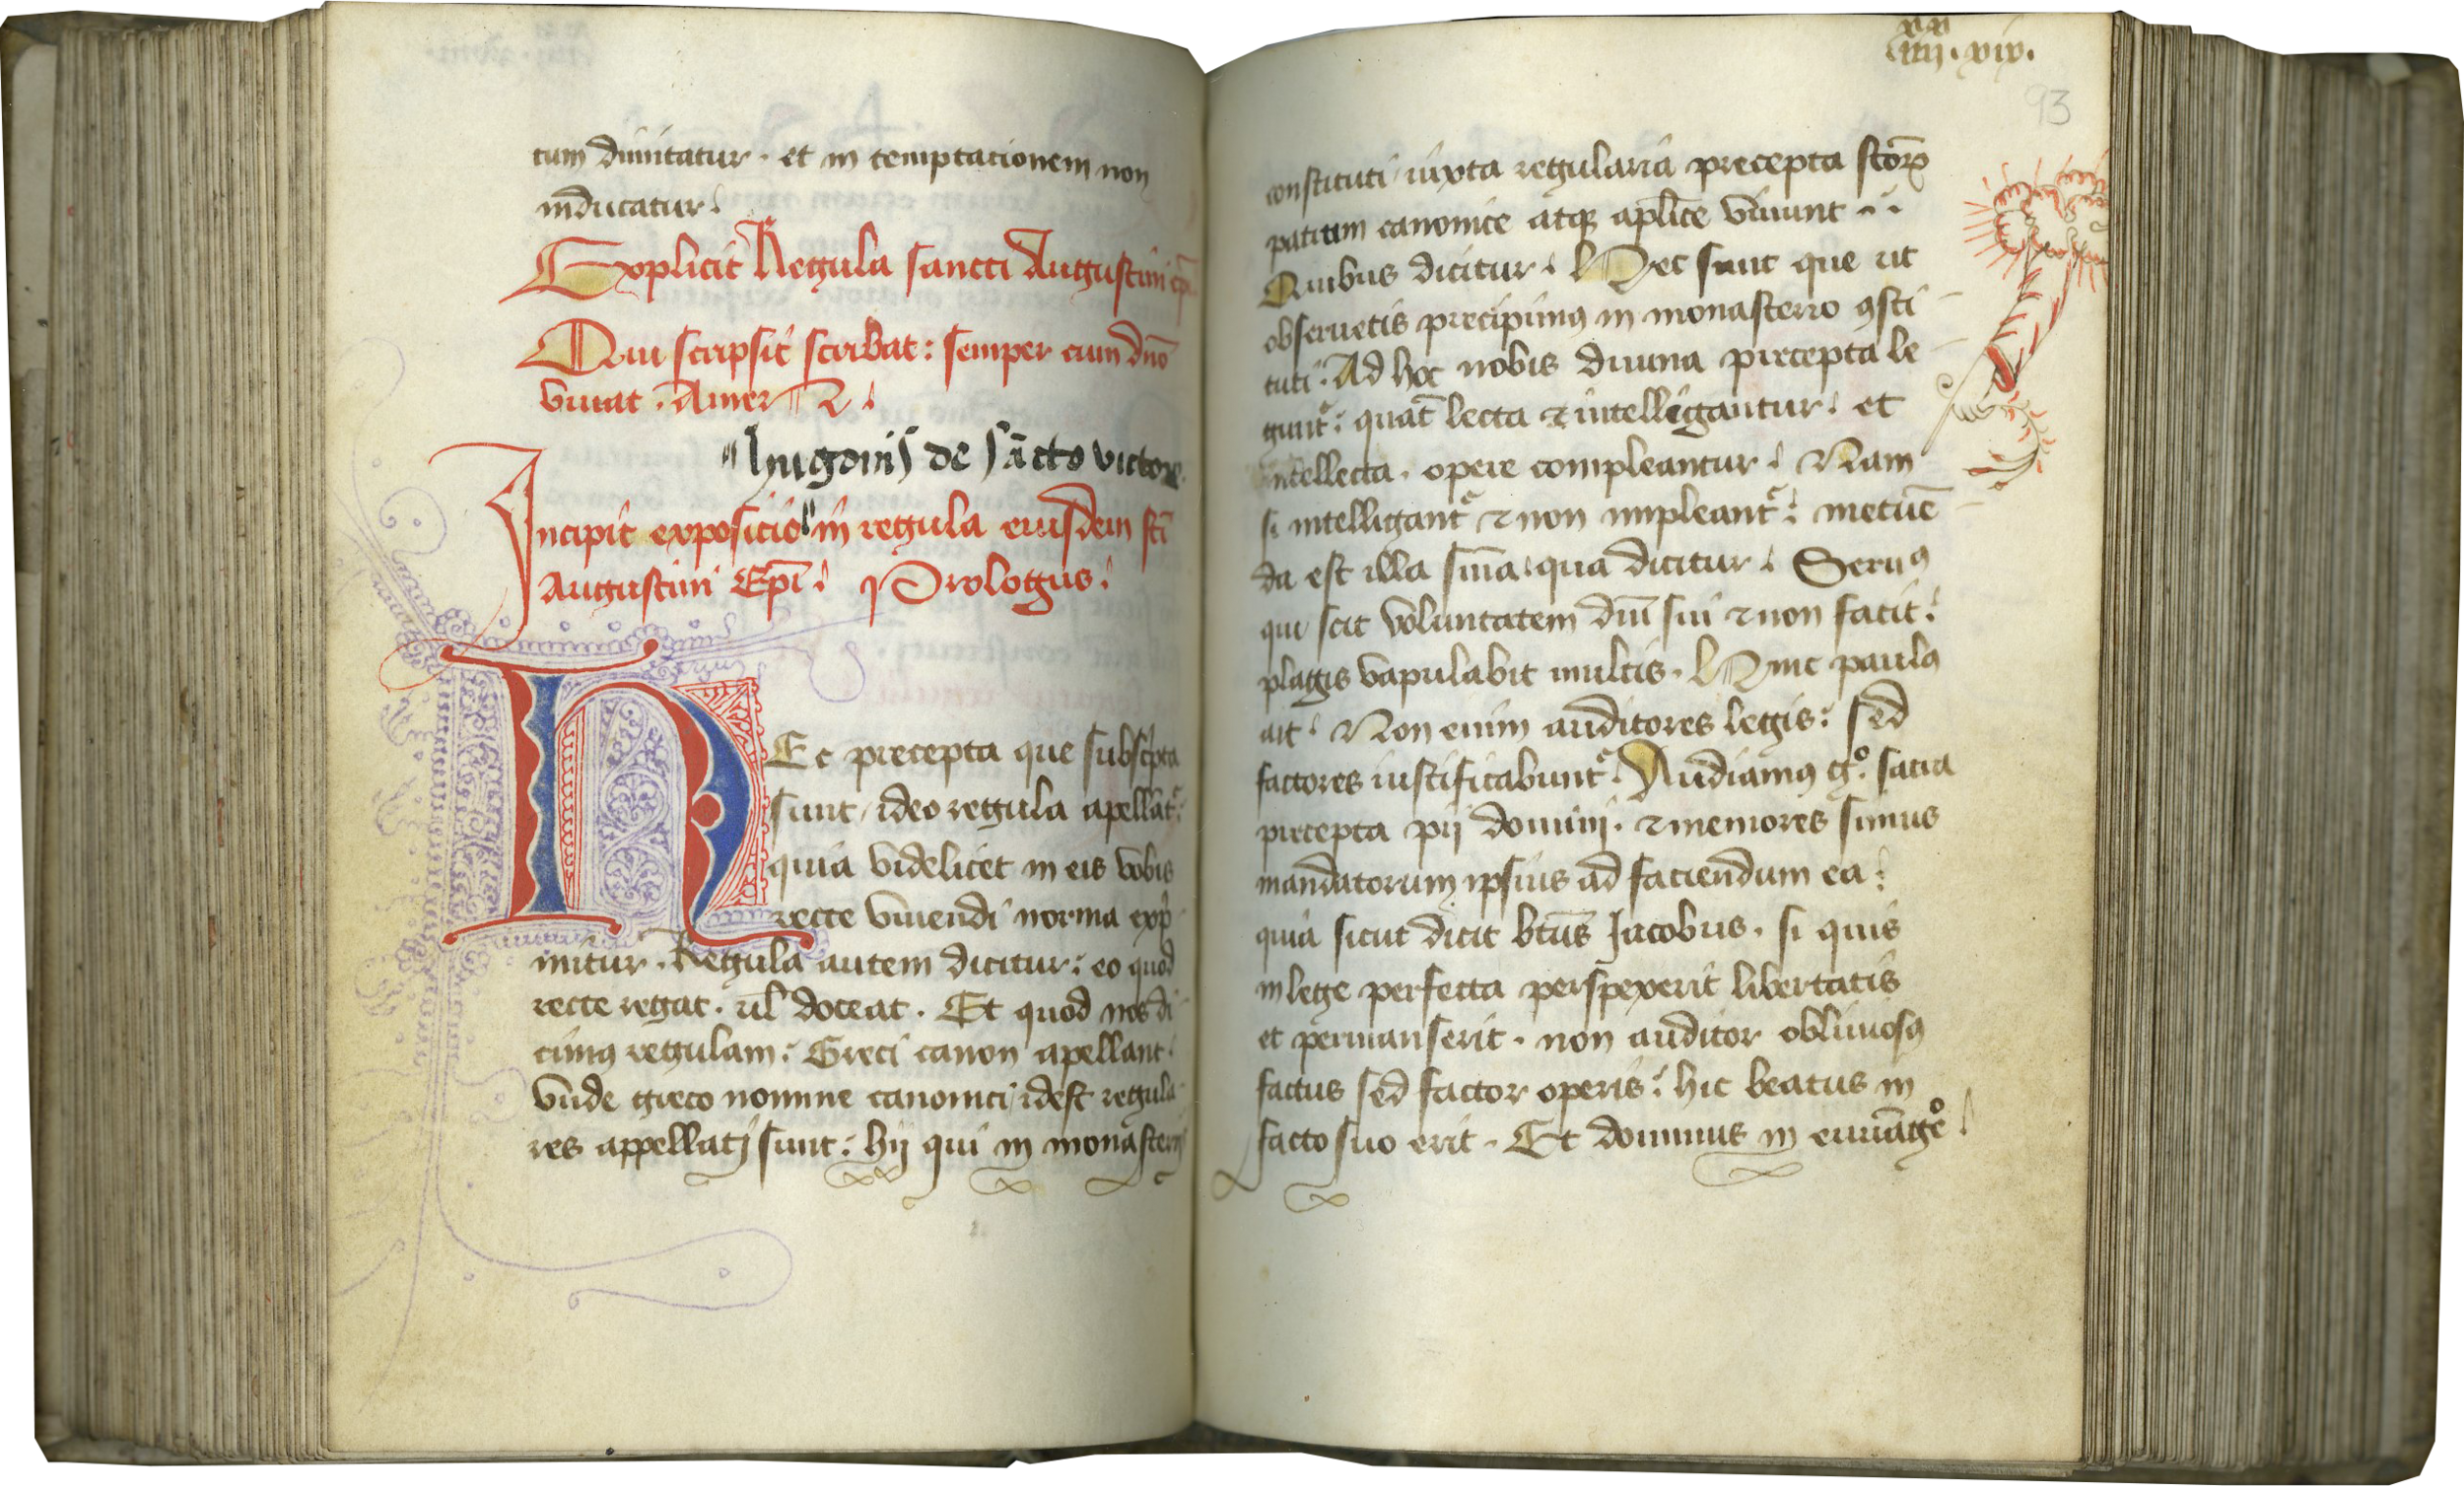 tum dimitatur · et in temptacionem non
inducatur
Explicit Regula sancti Augustini ep̄i
Qui scripsit scribat : semper cum dn̄o
viuat . Amen
hugonis de sācto victore
Incipit expositio in regula eiusdem sc̄i
Augustini Ep̄i . Prologus
HEc precepta que subsc̍pta
sunt / ideo regula apellāt᷑
quia videlicet in eis vobis
recte viuendi norma exp̍
mitur . Regula autem dicitur : eo quod
recte regat . ul̄ doceat . Et quod nos di
cimꝰ regulam : Greci canon apellant
vnde greco nomine canonici / idest regula
res appellati sunt : hij qui in monasterijs
.iiij. xix.
93
constituti / iuxta regularia precepta sc̄oꝝ
patrum canonice atqꝫ apl̄ice viuunt
Quibus dicitur . Hec sunt que ut
obseruetis precipimꝰ in monasterio ꝯsti
tuti . Ad hoc nobis diuina precepta le
gunt᷑ : quat̄ lecta ⁊ intelligantur . et
intellecta . opere compleantur . Nam
si intelligant᷑ ⁊ non impleant᷑ : metuē
da est illa sn̄ia qua dicitur . Seruꝰ
qui scit voluntatem dn̄i sui ⁊ non facit :
plagis vapulabit multis . Hinc paulꝰ
ait . Non enim auditores legis : sed
factores iustificabunt᷑ . Audiamꝰ gͦ . sacra
precepta pij domini . ⁊ memores simus
mandatorum ipsius ad faciendum ea :
quia sicut dicit btūs Jacobus . si quis
in lege perfecta perspexerit libertatis
et permanserit . non auditor obliuiosꝰ
factus sed factor operis : hic beatus in
facto suo erit . Et dominus in euuāgeͦ